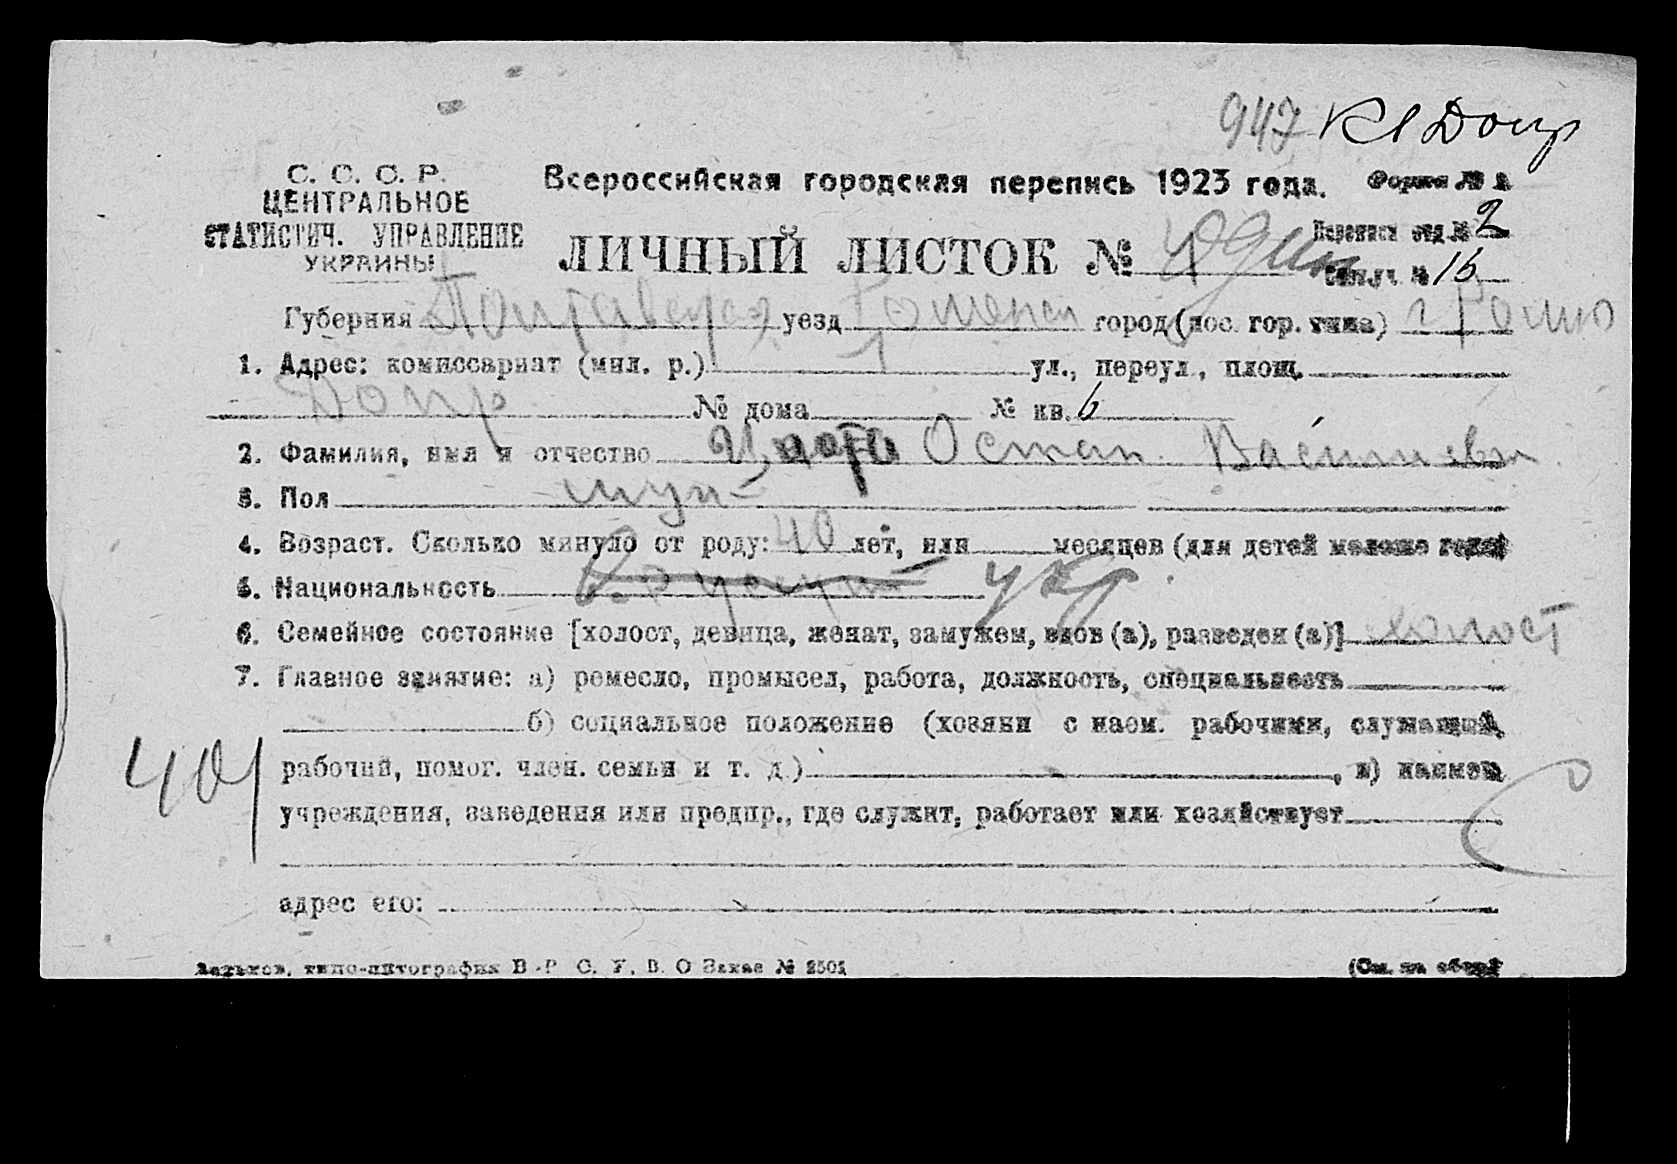 947 Кl Допр
С. С. С. Р.
ЦЕНТРАЛЬНОЕ
СТАТИСТИЧ. УПРАВЛЕНИЕ
УКРАИНЫ
Всероссийская городская перепись 1923 года.
Форма № 1
ЛИЧНЫЙ ЛИСТОК № 1 один
Переписн отд. № 2
Сч. уч. № 15
Губерния Полтавская уезд Роменск город (пос. гор. типа) г Ромно
1. Адрес: комиссариат (мил. р.) 1 ул., переул., площ.
Допр № дома № кв. 6
2. Фамилия, имя и отчество Остап Васильевич
3. Пол муж
4. Возраст. Сколько минуло от роду: 40 лет, или месяцев (для детей моложе года)
5. Национальность укр.
6. Семейное состояние [холост, девица, женат, замужем, вдов (а), разведен (а)] холост
7. Главное занятие: а) ремесло, промысел, работа, должность, специальность
б) социальное положение (хозяин с наем. рабочими, служащий,
рабочий, помог. член. семьи и т. д.) , в) наимен.
401
учреждения, заведения или предпр., где служит, работает или хозяйствует
адрес его:
Харьков, типо-литография В. Р. С. У. В. О Заказ № 2501
(См. на обор.)